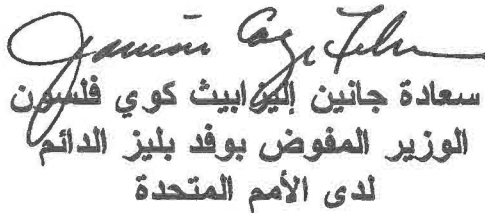 سعادة جانين إليزابيث كوي فلسون
الوزير المفوض بوفد بليز الدائم
لدى الأمم المتحدة